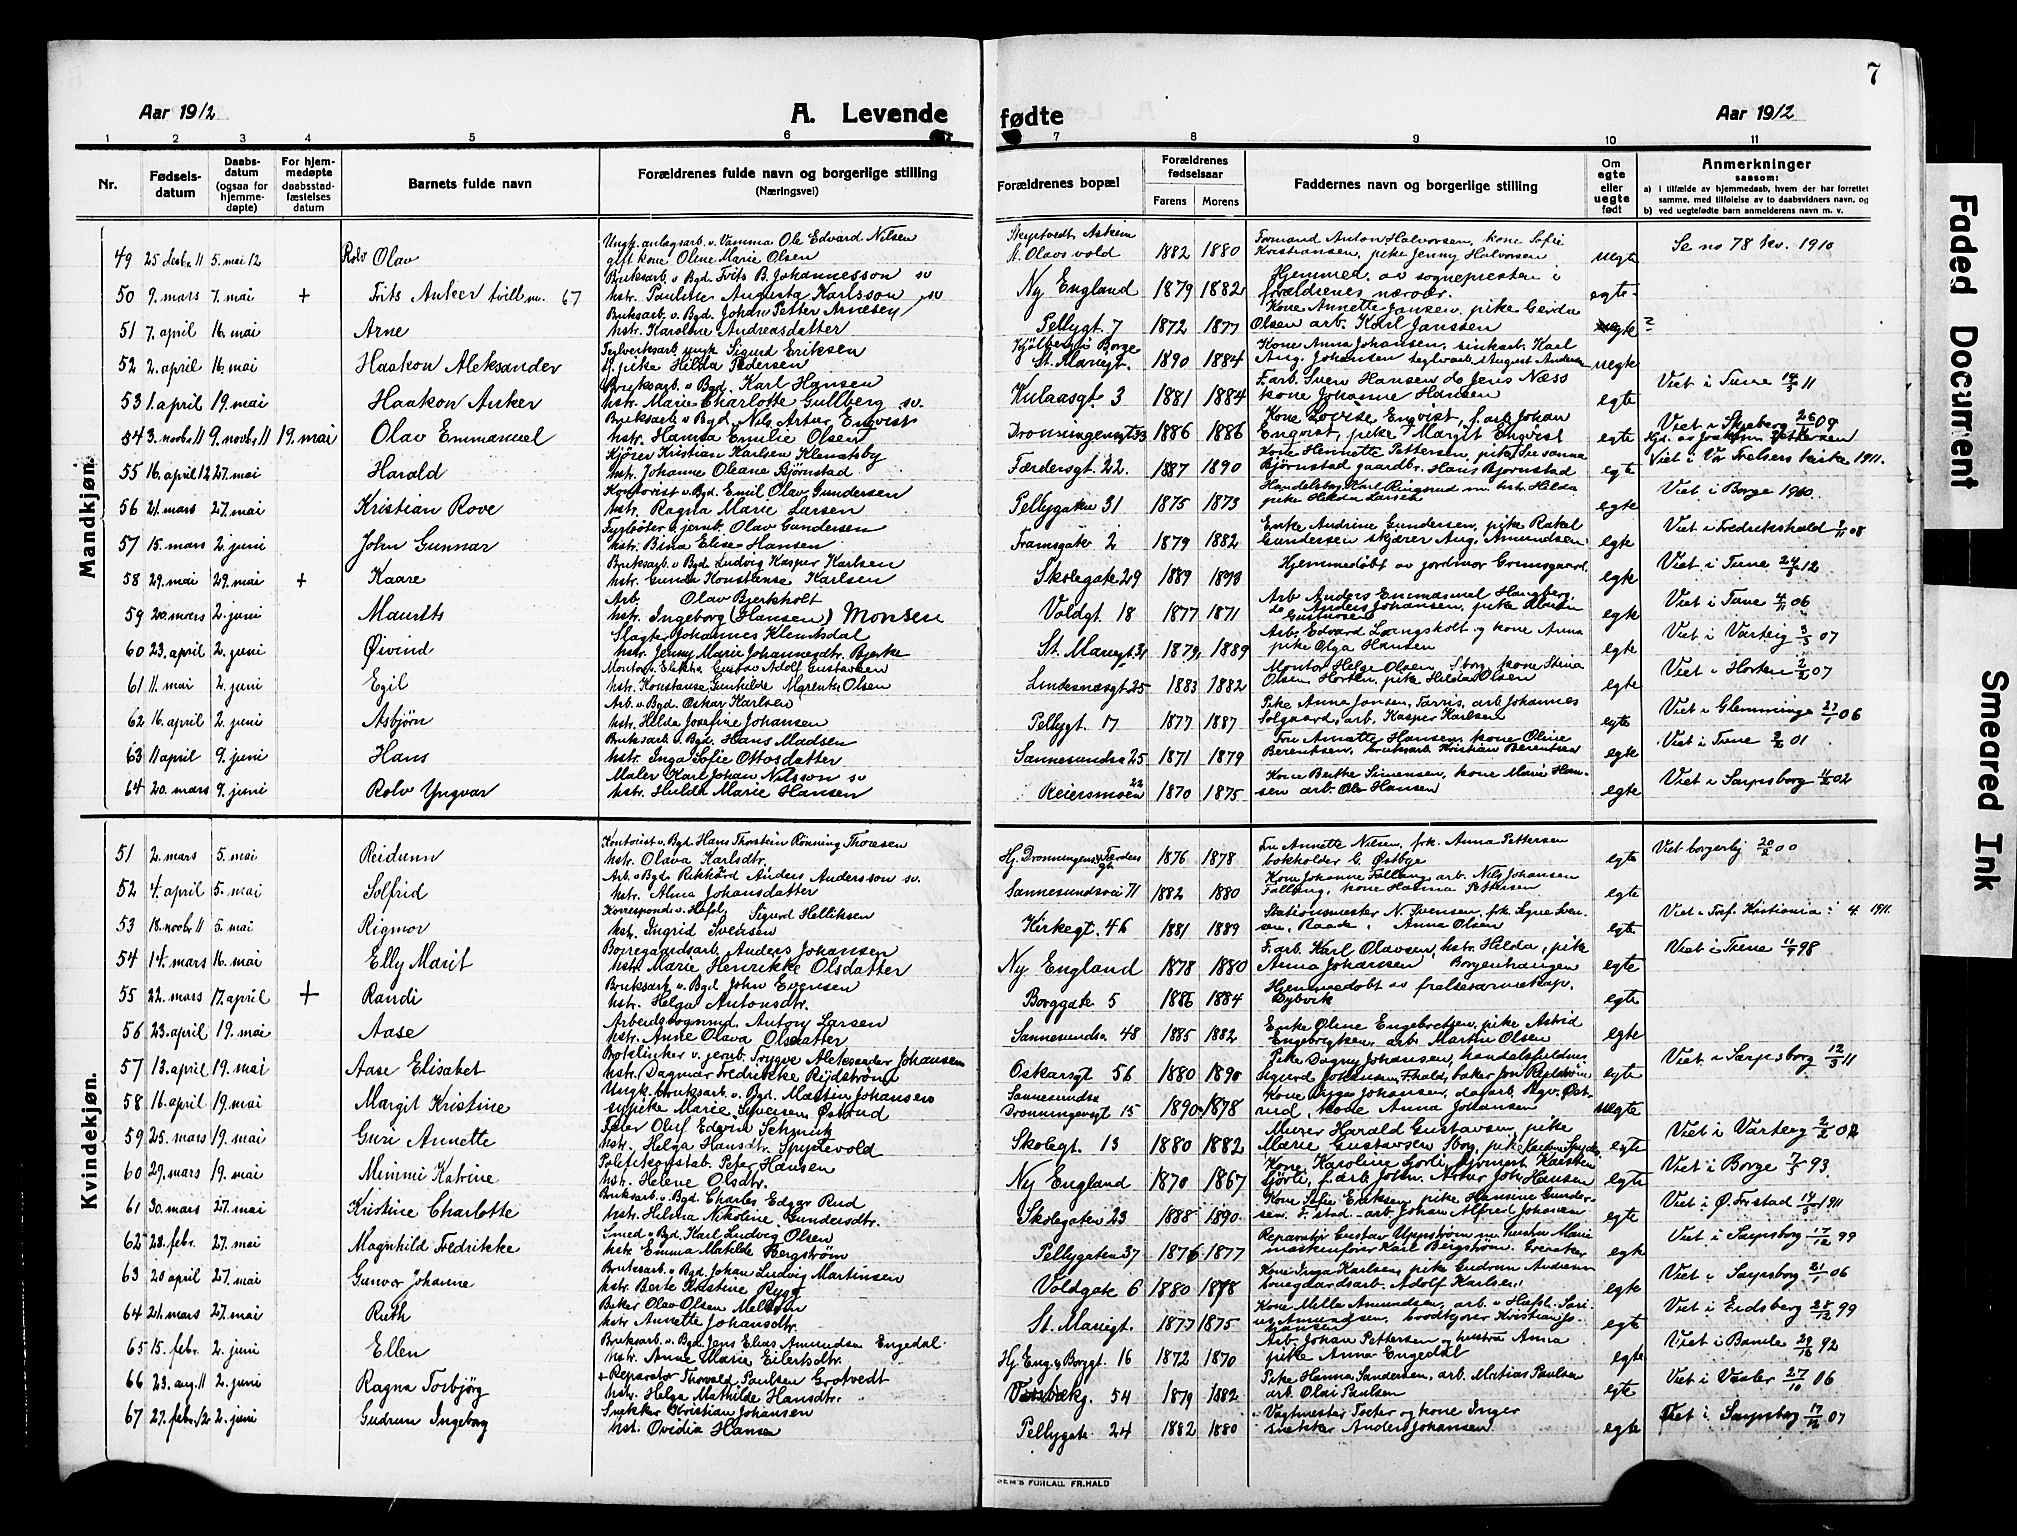 7
Aar 1912
A. Levende
fødte
Aar 1912
1 2 3 4 5 6 7 8 9 10 11
Nr.
Fødsels-
datum
Daabs-
datum
(ogsaa for
hjemme-
døpte)
For hjem-
medøpte
daabsstad-
fæstelses
datum
Barnets fulde navn
Forældrenes fulde navn og borgerlige stilling
(Næringsvei)
Forældrenes bopæl
Forældrenes
fødselsaar
Farens Morens
Faddernes navn og borgerlige stilling
Om
egte
eller
uegte
født
Anmerkninger
saasom:
a) i tilfælde av hjemmedaab, hvem der har forrettet
samme, med tilføielse av to daabsvidners navn, og
b) ved uegtefødte barn anmelderens navn m. v.
Mandkjøn.
Ungk. anlagsarb. v. Vamma Ole Edvard Nilsen
49 25 desbr. 11 5. mai 12 Rolv Olav gift kone Oline Marie Olsen
Skiptvedt Askim
St. Olavs vold 1882 1880 Formand Anton Halvorsen, kone Sofie
Kristiansen, pike Jenny Halvorsen uegte Se no 78 kv. 1910
Bruksarb. v. Bgd. Frits B. Johannesson sv
50 9. mars 7. mai + Frits Anker tvill m. 67 hstr. Paulette Augusta Karlsson sv
Ny England 1879 1882 Hjemmed. av sognepresten i
forældrenes nærvær. egte
Bruksarb. v. Bgd. Johan Petter Arnesen
51 7. april 16. mai Arne hstr. Karoline Andreasdatter
Pellygt. 7 1872 1877 Kone Annette Jansen, pike Gerda
Olsen arb. Karl Janssen egte ?
Teglverksarb. ungk Sigurd Eriksen
52 2. april 16. mai Haakon Aleksander pike Hilda Pedersen
Kjølberg i Borge
St. Mariegt. 1890 1884 Kone Anna Johansen, sinkarb. Karl
Aug. Johansen teglvarb. August Andersen uegte
Bruksarb. v. Bgd. Karl Hansen
53 1. april 19. mai Haakon Anker hstr. Marie Charlotte Gullberg sv.
Kulaasgt. 3 1881 1884 F. arb. Sven Hansen do Jens Næss
kone Johanne Hansen egte Viet i Tune 14/5 11
Bruksarb. v. Bgd. Nils Artur Enqvist
54 3. novbr. 11 9. novbr. 11 19. mai Olav Emmanuel hstr. Hanna Emilie Olsen
Dronningensgt 53 1886 1886 Kone Lovise Enqvist, f. arb. Johan
Enqvist, pike Margit Enqvist egte Viet i Skjeberg 26/ 09
Kjører Kristian Karlsen Klemetsby
55 16. april 12 27. mai Harald hstr. Johanne Oleane Bjørnstad
Færdersgt. 22. 1887 1890 Kone Hennette Pettersen, pike Susanna
Bjørnstad gaardbr. Hans Bjørnstad egte Viet i Vor Frelsers kirke 1911.
Kontorist v. Bgd. Emil Olav Gundersen
56 21. mars 27. mai Kristian Rove hstr. Ragna Marie Larsen
Pellygaten 31 1875 1873 Handelsbg. Karl Ringsrud m. hstr. Hilda
pike Helene Larsen egte Viet i Borge 1900.
Fyrbøter v. jernb. Olav Gundersen
57 15. mars 2. juni John Gunnar hstr. Bina Elise Hansen
Framsgate 2 1879 1882 Enke Andrine Gundersen, pike Rakel
Gundersen skjærer Aug. Amundsen egte Viet i Fredrikshald 1/11 08
Bruksarb. v. Bgd. Ludvig Kasper Karlsen
58 29. mai 29. mai + Kaare hstr. Gunda Konstanse Karlsen
Skolegate 29 1889 1890 Hjemmedøbt av jordmor Grimsgaard egte Viet i Tune 24/3 12
Arb. Olav Bjerkholt
59 20. mars 2. juni Maurits hstr. Ingeborg (Hansen) Monsen
Voldgt. 18 1877 1871 Arb. Anders Emmanuel Haugberg,
do Anders Johansen, pike
Gustavsen egte Viet i Tune 4/11 06
Slagter Johannes Klemtsdal
60 23. april 2. juni Øivind hstr. Jenny Marie Johannesdtr. Bjerke
St. Mariegt. 31 1879 1889 Arb. Edvard Langsholt og kone Anna
pike Olga Hansen egte Viet i Varteig 3/3 07
Montør Elektr. Gustav Adolf Gustavsen
61 11. mai 2. juni Egil hstr. Konstanse Gunhilde Marentse Olsen
Lindesnæsgt. 25 1883 1882 Montør Helge Olsen, S.borg, kone Stina
Olsen Horten, pike Hilda Olsen egte Viet i Horten 2/2 07
Arb. v. Bgd. Oskar Karlsen
62 16. april 2. juni Asbjørn hstr. Hilda Josefine Johansen
Pellygt. 17 1877 1887 Pike Anna Jonsen, Tarris, arb. Johannes
Solgaard, arb. Kasper Karlsen egte Viet i Glemminge 27/1 06
Bruksarb. v. Bgd. Hans Madsen
63 11 april 9. juni Hans hstr. Inga Sofie Ottosdatter
Sannesundsv. 25 1871 1879 Fru Annette Hansen, kone Oline
Berentsen, bruksarb. Kristian Berentsen egte Viet i Tune 01
Maler Karl Johan Nilsson sv
64 20. mars 9. juni Rolv Yngvar hstr. Hulda Marie Hansen
Reiersmoen 22 1870 1875 Kone Berthe Simensen, kone Marie Han-
sen arb. Ole Hansen egte Viet i Sarpsborg 02
Kvindekjøn.
Kontorist v. Bgd. Hans Thorstein Rønning Thoresen
51 2. mars 5. mai Reidunn hstr. Olava Karlsdtr.
Hj. Dronningens & Færders gt. 1876 1878 Fru Annette Nilsen, frk. Anna Pettersen
bokholder G. Østbye egte Viet borgerlig 20/2 00
Arb. v. Bgd. Rikhard Anders Andersson sv.
52 4. april 5. mai Solfrid hstr. Alma Johansdatter
Sannesundsvei 71 1882 1880 Kone Johanne Fallang, arb. Nils Johansen
Fallang, kone Hanna Pettersen egte
Korrespond. v. Hafsl. Sigurd Helliksen
53 18. novbr 11 5. mai Rigmor hstr. Ingrid Svensen
Kirkegt. 46 1881 1889 Stationsmester N. Svensen, frk. Signe Sven-
sen, Raade, Anna Olsen egte Viet i Tref. Kristiania 4. 1911.
Borregaardsarb. Anders Johansen
54 14. mars 16. mai Elly Marit hstr. Marie Henrikke Olsdatter
Ny England 1878 1880 F. arb. Karl Olavsen, hstr. Hilda, pike
Anna Johansen, Borgenhaugen egte Viet i Tune 11/9 98
Bruksarb. v. Bgd John Evensen
55 22. mars 17. april + Randi hstr. Helga Antonsdtr.
Borggate 5 1886 1884 Hjemmedøbt av frelsesarmekap.
Dybvik egte
Arbeidsvognmd. Anton Larsen
56 23. april 19. mai Aase hstr. Anne Olava Olsdatter
Sannesundsv. 48 1885 1882 Enke Oline Engebretsen, pike Astrid
Engebrigtsen, arb. Martin Olsen egte
Botelinker v. jernb. Trygve Aleksander Johansen
57 13. april 19. mai Aase Elisabet hstr. Dagmar Fredrikke Rydstrøm
Oskarsgt 56 1880 1890 Pike Dagny Johansen, handelsfuldm.
Sigurd Johansen, F.hald, baker Jon Rydstrøm egte Viet i Sarpsborg 12/3 11
Ungk. bruksarb. v. Bgd. Martin Johansen
58 16. april 19. mai Margit Kristine sypike Marie Syversen Østrud
Sannesundsv
Dronningensgt 15 1890 1878 Kone Olga Johansen, dagarb. Hgv. Øst-
rud, kone Anna Johansen uegte
Feier Oluf Edvin Schmuck
59 25. mars 19. mai Guri Annette hstr. Helga Hansdtr. Spydevold
Skolegt. 13 1880 1882 Murer Harald Gustavsen, pike
Marie Gustavsen S.borg, pike Karen Spydev. egte Viet i Varteig 2/2 02
Politikonstab. Peter Hansen
60 29. mars 19. mai Mimmi Katrine hstr. Helene Olsdtr.
Ny England 1870 1867 Kone Karoline Gjørli, Karsten
Gjørli, f. arb. Johan Artur Joh. Hansen egte Viet i Borge 7/5 93.
Bruksarb. v. Bgd. Charles Edgar Rud
61 30. mars 27. mai Kristine Charlotte hstr. Helma Nikoline Gundersdtr.
Skolegaten 23 1888 1890 Kone Sofie Eriksen, pike Hansine Gunder-
sen, F.stad arb. Johan Alfred Johansen egte Viet i Ø. Frstad 14/5 1911
Smed v. Bgd. Karl Ludvig Olsen
62 28. febr. 27. mai Magnhild Fredrikke hstr Emma Matilde Bergstrøm
Pellygaten 37 1876 1877 Reparatør Gustav Uppstrøm m. hustru Marie
maskinfører Karl Bergstrøm, Greaaker egte Viet i Sarpsborg 17/12 99
Bruksarb. v. Bgd. Johan Ludvig Martinsen
63 20 april 27. mai Gunvor Johanne hstr. Berte Kristine Rygg
Voldgate 6 1880 1878 Kone Inga Karlsen, pike Gudrun Andersen
borregaardsarb. Adolf Karlsen egte Viet i Sarpsborg 21/1 06
Beker Olav Olsen Mellom
64 21. mars 27. mai Ruth hstr Annette Johansdtr.
St. Mariegt. 1877 1875 Kone Milla Amundsen, arb. v. Hafsl. Sari-
us Amundsen, brodkjører Kristian Jo-
hansen egte Viet i Eidsberg 28/12 99
Bruksarb. v. Bgd. Jens Elias Amundsen Engedal
65 15. febr. 2. juni Ellen hstr. Anne Marie Eilertsdtr.
Hj. Eng. & Borggt. 16 1872 1870 Arb. Johan Pettersen og hustru Anna
pike Anna Engedal egte Viet i Bamle 29/6 92
+ Reparatør Thorvald Paulsen Grotvedt
66 23. aug. 11 2. juni Ragna Torbjørg hstr. Helga Mathilde Hansdtr.
Torsbækg. 54 1879 1882 Pike Hanna Sandersen, arb. Matias Paulsen
arb. Olai Paulsen egte Viet i Vaaler 27/10 06
Snekker Kristian Johansen
67 27. febr. 12 2. juni Gudrun Ingeborg hst. Ovidia Hansen
Pellygate 24 1882 1880 Vagtmester Toeter og kone Inger
snekker Anders Johansen egte Viet i Sarpsborg 17/12 07
SEM'S FORLAG. FR.HALD
Faded Document
Smeared Ink